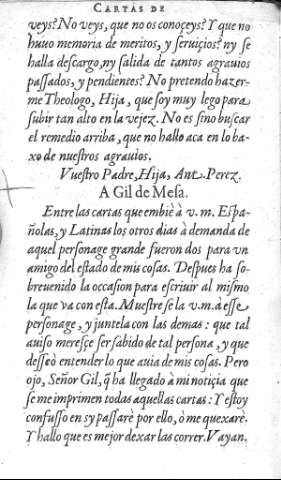 CARTAS DE
veys? No veys, que no os conoçeys? Y que no
huuo memoria de meritos, y seruiçios? ny se
halla descargo, ny salida de tantos agrauios
passados, y pendientes? No pretendo hazer-
me Theologo, Hija, que soy muy lego para
subir tan alto en la vejez. No es sino buscar
el remedio arriba, que no hallo aca en lo ba-
xo de nuestros agrauios.
Vuestro Padre, Hija, Ant. Perez.
A Gil de Mesa.
Entre las cartas que embiè à v. m. Espa-
ñolas, y Latinas los otros dias à demanda de
aquel personage grande fueron dos para vn
amigo del estado de mis cosas. Despues ha so-
breuenido la occasion para escriuir al mismo
la que va con esta. Muestre se la v. m. à esse
personage, y juntela con las demas: que tal
auiso meresçe ser sabido de tal persona, y que
desseò entender lo que auia de mis cosas. Pero
ojo, Señor Gil, q̃ ha llegado à mi notiçia que
se me imprimen todas aquellas cartas: Y estoy
confusso en sy passarè por ello, ò me quexarè.
Y hallo que es mejor dexar las correr. Vayan.